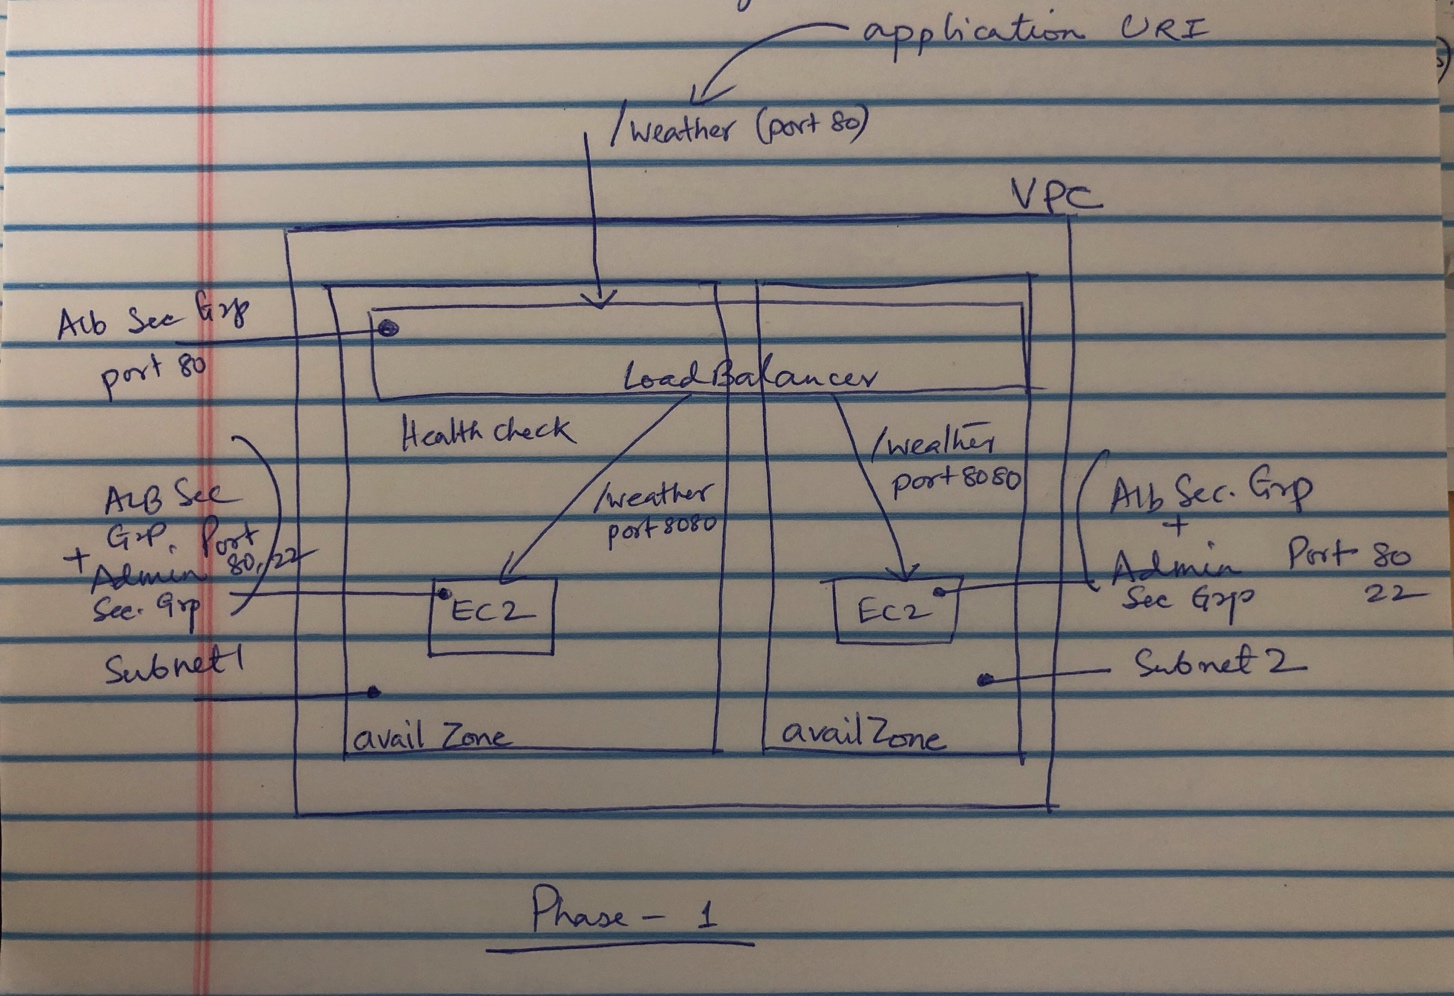 application URI
/weather (port 80)
VPC
Alb Sec Grp
port 80
Load Balancer
Health check
/weather
port 8080
/weather
port 8080
ALB Sec
Grp. Port
80, 22
+
Admin
Sec. Grp
Alb Sec. Grp
+
Admin
Sec Grp
Port 80
22
EC2
EC2
Subnet 1
Subnet 2
avail Zone
avail Zone
Phase - 1